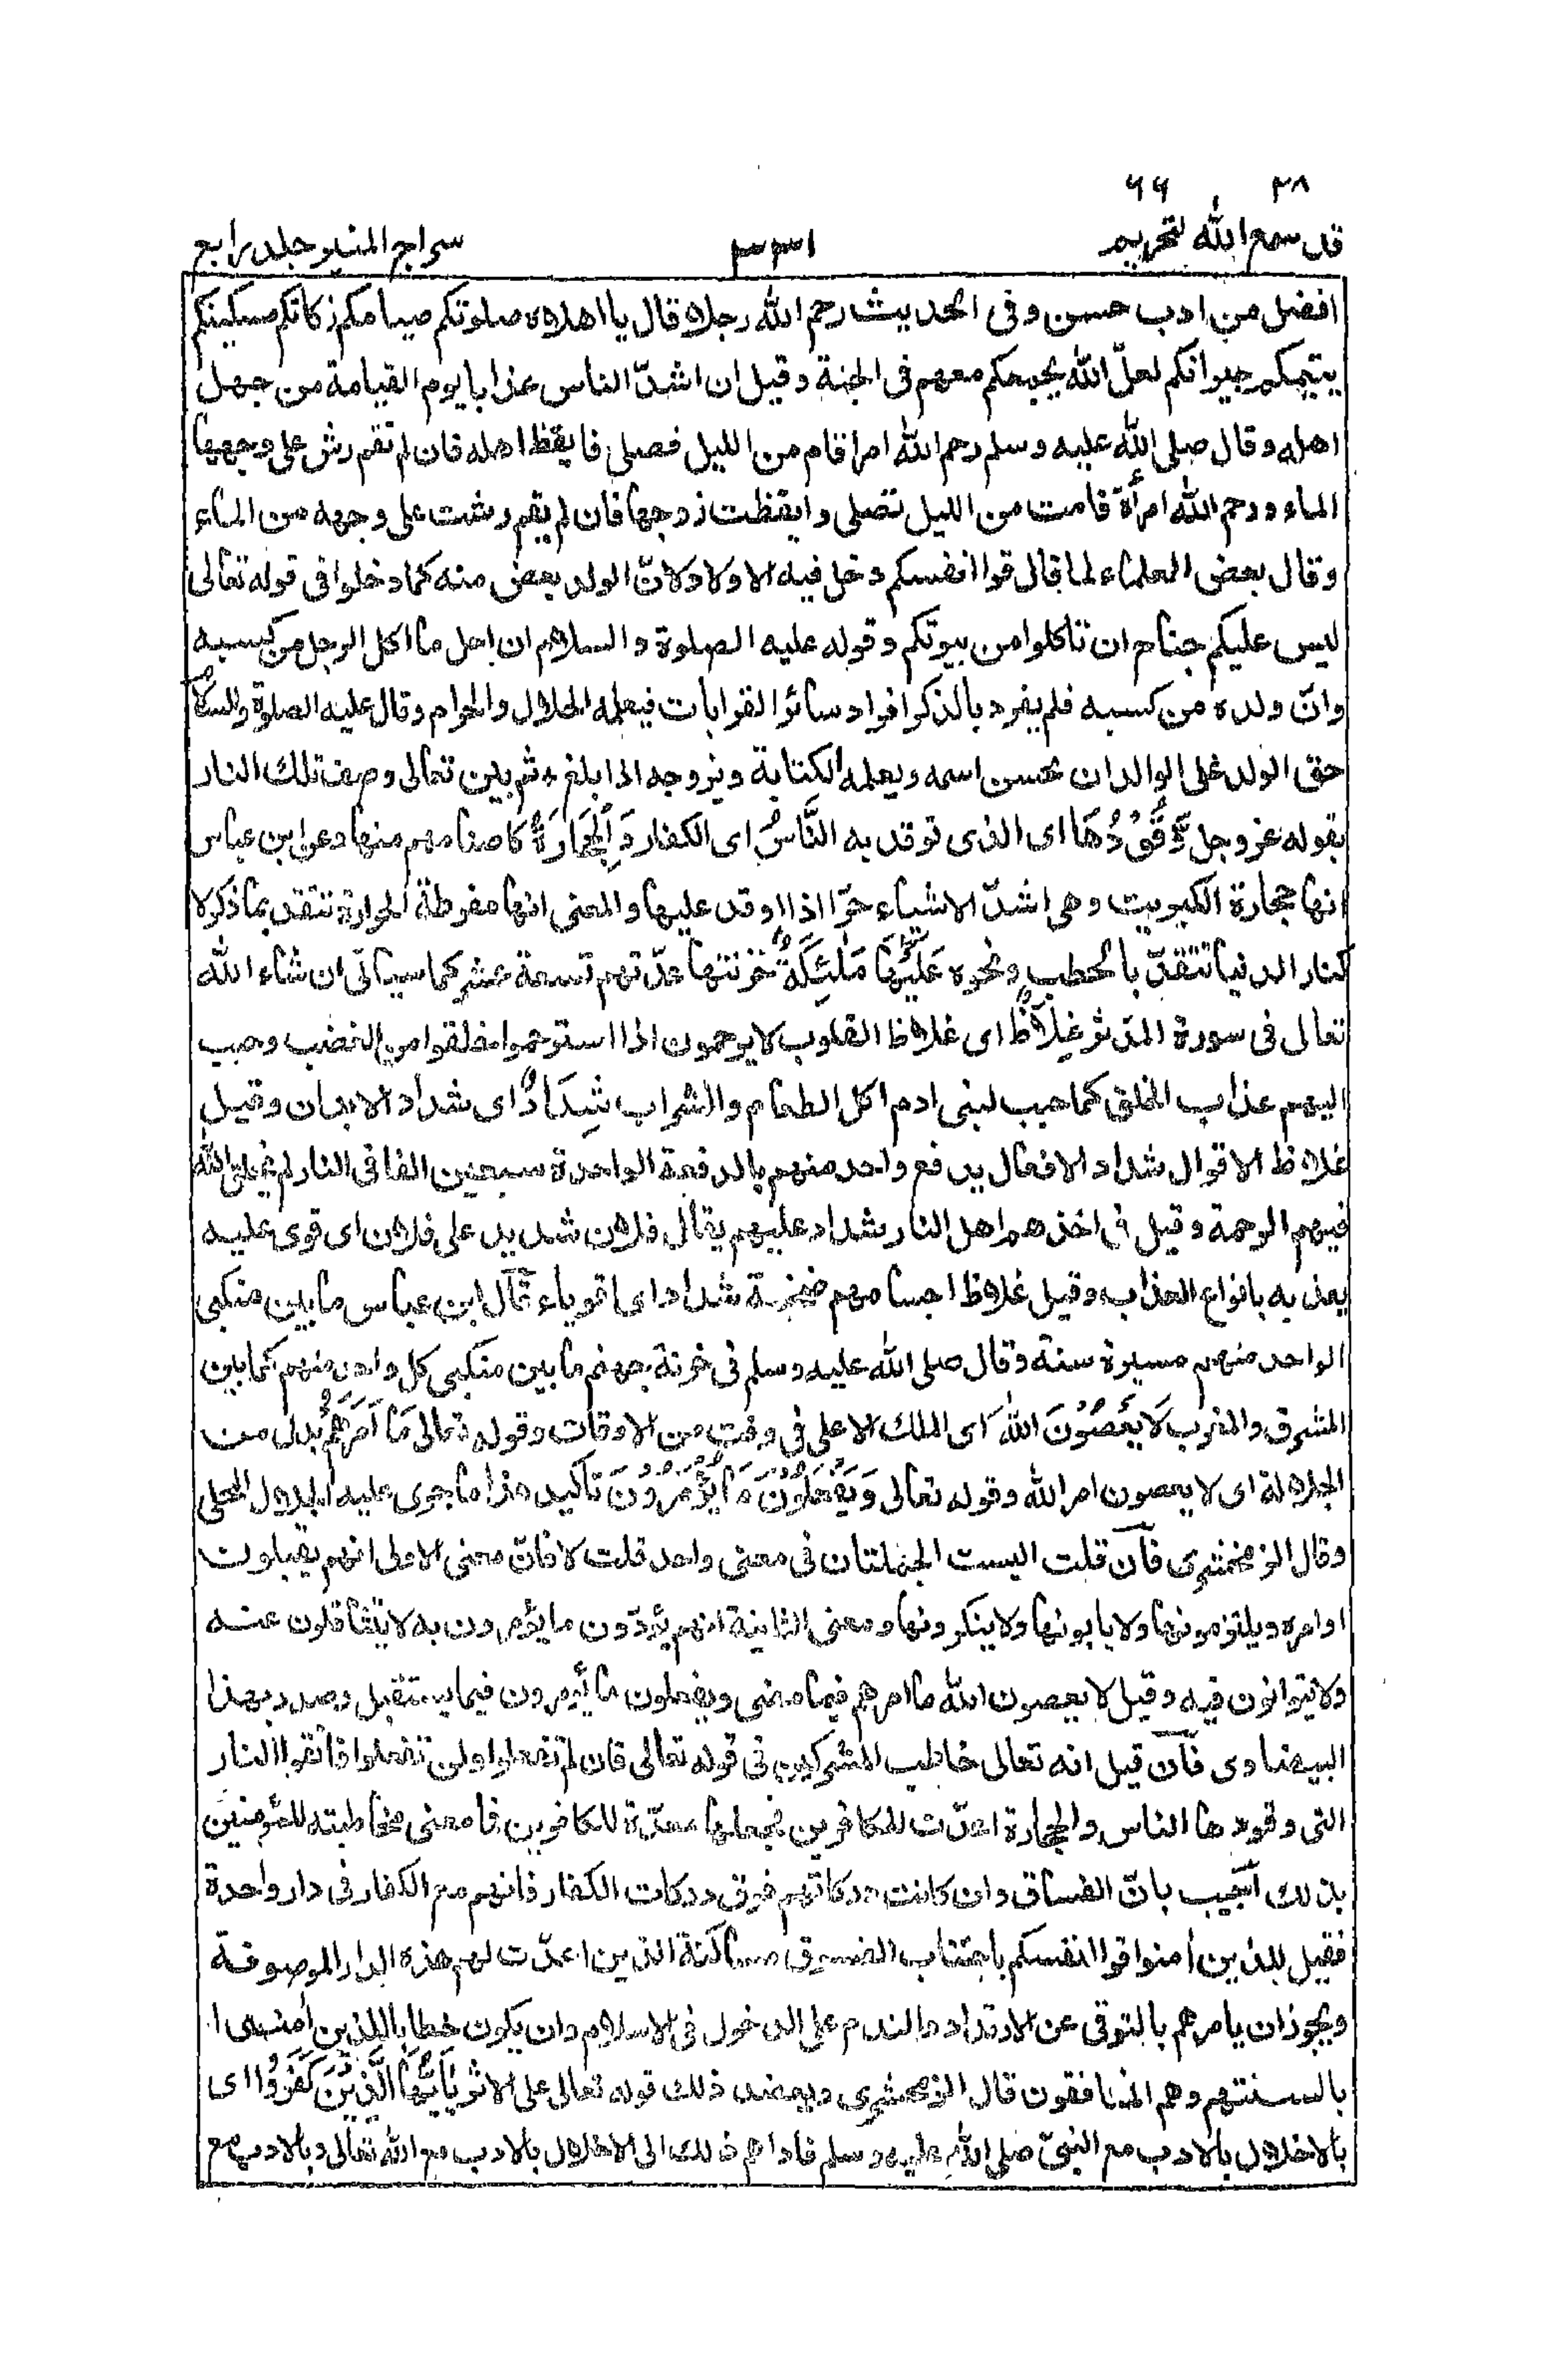 ٢٨ ٦٦
قد سمع الله لتحريم ٣٣١ سراج المنير جلد رابع
افضل من ادب حسن وفى الحديث رحم الله رجلا قال يا اهلاه صلوتكم صيامكم زكاتكم مسكينكم
يتيمكم جيرانكم لعلّ الله يجمعكم معهم فى الجنة وقيل ان اشدّ الناس عذابا يوم القيامة من جهل
اهله وقال صلى الله عليه وسلم رحم الله امرا قام من الليل فصلى فايقظ اهله فان لم تقم رش على وجهها
الماء ورحم الله امرأة قامت من الليل تصلى وايقظت زوجها فان لم يقم رشت على وجهه من الماء
وقال بعض العلماء لما قال قوا انفسكم دخل فيه الاولاد لانّ الولد بعض منه كما دخلوا فى قوله تعالى
ليس عليكم جناح ان تاكلوا من بيوتكم وقوله عليه الصلوة والسلام ان احل ما اكل الرجل من كسبه
وانّ ولده من كسبه فلم يفرد بالذكر افراد سائر القرابات فيعلمه الحلال والحرام وقال عليه الصلوة والسلام
حق الولد على الوالد ان يحسن اسمه ويعلمه الكتابة ويزوجه اذا بلغ ثم بين تعالى وصف تلك النار
بقوله عزوجل وَّقُوْدُهَا اى الذى توقد به النَّاسُ اى الكفار وَالْحِجَارَةُ كاصنامهم منها وعن ابن عباس
انها حجارة الكبريت وهى اشدّ الاشياء حرّا اذا اوقد عليها والمعنى انها مفرطة الحرارة تتقد بما ذكر لا
كنار الدنيا تتقدّ بالحطب ونحوه عَلَيْهَا مَلٰئِكَةٌ خزنتها عدّتهم تسعة عشر كما سياتى ان شاء الله
تعالى فى سورة المدّثر غِلَاظٌ اى غلاظ القلوب لا يرحمون اذا استرحموا خلقوا من الغضب وحبب
اليهم عذاب الخلق كما حبب لبنى ادم اكل الطعام والشراب شِدَادٌ اى شداد الابدان وقيل
غلاظ الاقوال شداد الافعال يدفع واحد منهم بالدفعة الواحدة سبعين الفا فى النار لم يخلق الله
فيهم الرحمة وقيل فى اخذهم اهل النار شداد عليهم يقال فلان شديد على فلان اى قوى عليه
يعذبه بانواع العذاب وقيل غلاظ اجسامهم ضخمة شداد اى اقوياء قال ابن عباس ما بين منكبى
الواحد منهم مسيرة سنة وقال صلى الله عليه وسلم فى خزنة جهنم ما بين منكبى كل واحد منهم كما بين
المشرق والمغرب لَا يَعْصُوْنَ اللهَ اى الملك الاعلى فى وقت من الاوقات وقوله تعالى مَا اَمَرَهُمْ بدل من
الجلالة اى لا يعصون امر الله وقوله تعالى وَيَفْعَلُوْنَ مَا يُؤْمَرُوْنَ تاكيد هذا ما جرى عليه الجلال المحلى
وقال الزمخشرى فان قلت اليست الجملتان فى معنى واحد قلت لا فانّ معنى الاولى انهم يقبلون
اوامره ويلتزمونها ولا يابونها ولا ينكرونها ومعنى الثانية انهم يؤدّون ما يؤمرون به لا يتثاقلون عنه
ولا يتوانون فيه وقيل لا يعصون الله ما امرهم فيما مضى ويفعلون ما يؤمرون فيما يستقبل وصدر بهذا
البيضاوى فان قيل انه تعالى خاطب المشركين فى قوله تعالى فان لم تفعلوا ولن تفعلوا فاتقوا النار
التى وقودها الناس والحجارة اعدّت للكافرين فجعلها معدّة للكافرين فما معنى مخاطبته للمؤمنين
بذلك اجيب بانّ الفساق وان كانت دركاتهم فوق دركات الكفار فانهم مع الكفار فى دار واحدة
فقيل للذين امنوا قوا انفسكم باجتناب الفسوق مساكنة الذين اعدّت لهم هذه الدار الموصوفة
ويجوز ان يامرهم بالتوقى عن الارتداد والندم على الدخول فى الاسلام وان يكون خطابا للذين امنوا
بالسنتهم وهم المنافقون قال الزمخشرى ويعضد ذلك قوله تعالى على الاثر يٰاَيُّهَا الَّذِيْنَ كَفَرُوْا اى
بالاخلال بالادب مع النبىّ صلى الله عليه وسلم فاداهم ذلك الى الاخلال بالادب مع الله تعالى وبالادب مع